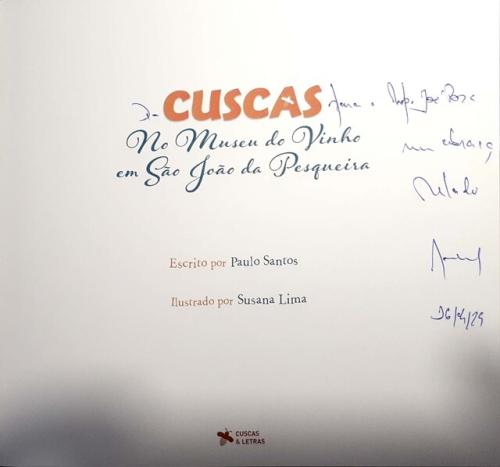 Do CUSCAS para o Prof. José
No Museu do Vinho
em São João da Pesqueira
um abraço
Escrito por Paulo Santos
Ilustrado por Susana Lima
CUSCAS
& LETRAS